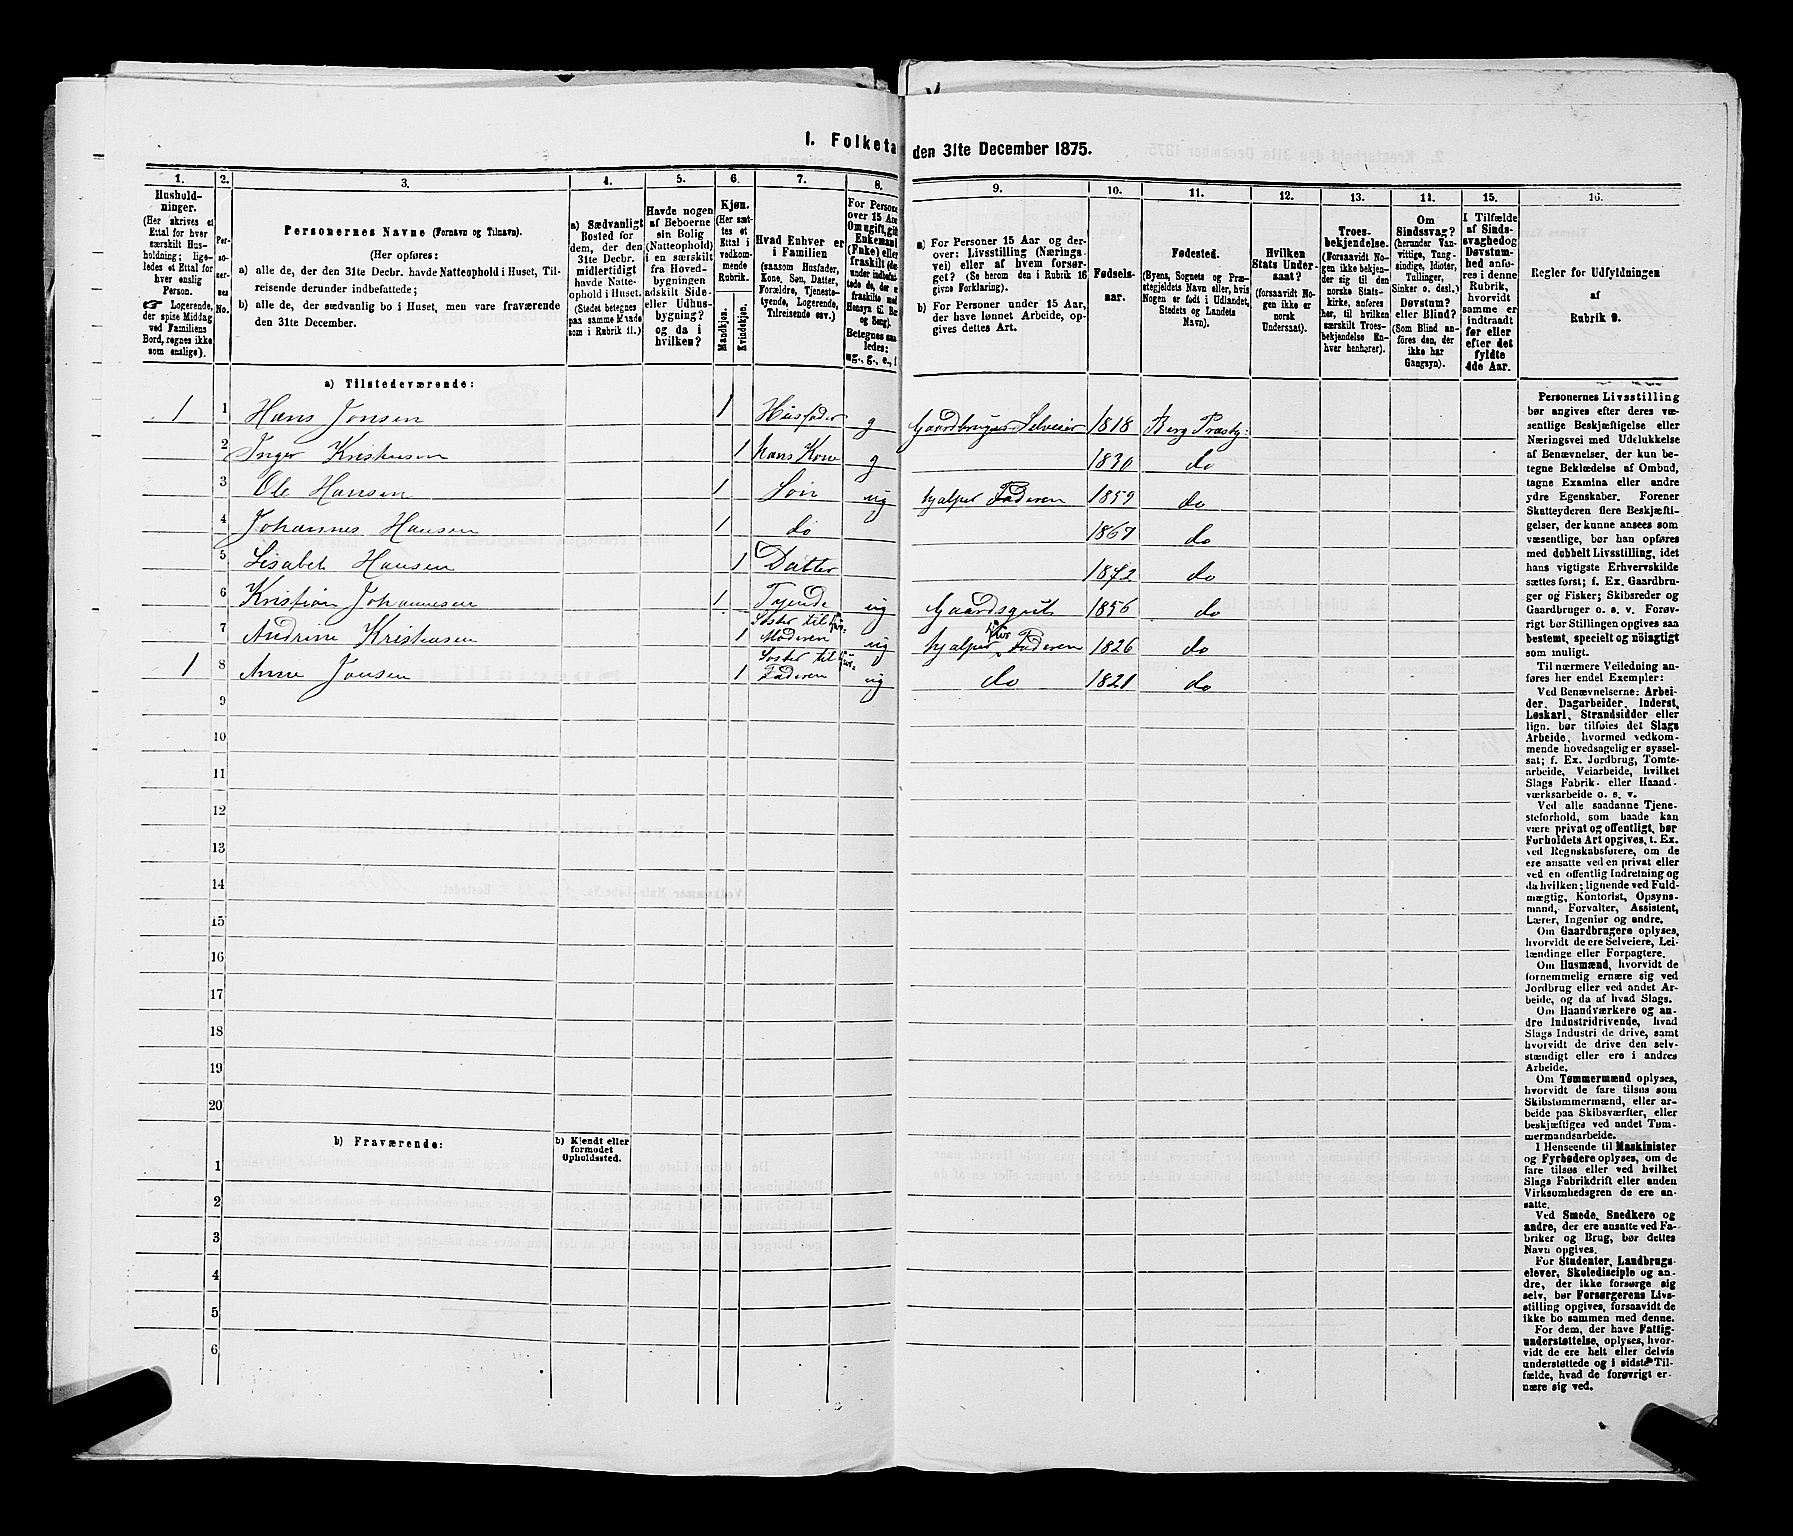 1. Folketa den 31te December 1875.
1. 2. 3. 4. 5. 6. 7. 8. 9. 10. 11. 12. 13. 14. 15. 16.
Hushold-
ninger.
(Her skrives et
Ettal for hver
særskilt Hus-
holdning; lige-
ledes et Ettal for
hver enslig
Person.
☞ Logerende,
der spise Middag
ved Familiens
Bord, regnes ikke
som enslige).
Per-
so-
ner-
nes
No.
Personernes Navne (Fornavn og Tilnavn).
(Her opføres:
a) alle de, der den 31te Decbr. havde Natteophold i Huset, Til-
reisende derunder indbefattede;
b) alle de, der sædvanlig bo i Huset, men vare fraværende
den 31te December.
a) Sædvanligt
Bosted for
dem, der den
31te Decbr.
midlertidigt
havde Natte-
ophold i Huset.
(Stedet betegnes
paa samme Maade
som i Rubrik 11.)
Havde nogen
af Beboerne
sin Bolig
(Natteophold)
i en særskilt
fra Hoved-
bygningen
adskilt Side-
eller Udhus-
bygning?
og da i
hvilken?
Kjøn.
(Her sæt-
tes et
Ettal i
vedkom-
mende
Rubrik.
Mandkjøn.
Kvindekjøn.
Hvad Enhver er
i Familien
(saasom Husfader,
Kone, Søn, Datter,
Forældre, Tjeneste-
tyende, Logerende,
Tilreisende osv.)
For Persone
over 15 Aar
Om ugift, gift
Enkemand
(Enke) eller
fraskilt (de
under indbefat-
tede de, der e
fraskilte med
Hensyn til Bo
og Seng).
Betegnes saa-
ledes:
ug., g., e., f
a) For Personer 15 Aar og der-
over: Livsstilling (Nærings-
vei) eller af hvem forsør-
get? (Se herom den i Rubrik 16
givne Forklaring).
b) For Personer under 15 Aar,
der have lønnet Arbeide, op-
gives dettes Art.
Fødsels-
aar.
Fødested.
(Byens, Sognets og Præ-
stegjeldets Navn eller, hvis
Nogen er født i Udlandet,
Stedets og Landets
Navn).
Hvilken
Stats Under-
saat?
(forsaavidt No-
gen ikke er
norsk
Undersaat).
Troes-
bekjendelse.
(Forsaavidt No-
gen ikke bekjen-
der sig til den
norske Stats-
kirke, anføres
her, til hvilken
særskilt Troes-
bekjendelse En-
hver henhører).
Om
Sindssvag?
(herunder Van-
vittige, Tung-
sindige, Idioter,
Tullinger,
Sinker o. desl.)
Døvstum?
eller Blind?
(Som Blind an-
føres den, der
ikke har
Gangsyn).
I Tilfælde
af Sinds-
svaghed og
Døvstum-
hed anfø-
res i denne
Rubrik,
hvorvidt
samme er
indtraadt
før eller
efter det
fyldte
4de Aar.
Regler for Udfyldningen
af
Rubrik 9.
a) Tilstedeværende:
1 1 Hans Jonsen 1 Husfader g Gaardbruger Selveier 1818 Berg Præstg:
2 Inger Kristiansen 1 Hans Kone g 1830 do
3 Ole Hansen 1 Søn ug hjælper Faderen 1859 do
4 Johannes Hansen 1 do 1867 do
5 Lisabet Hansen 1 Datter 1872 do
6 Kristian Johannesen 1 Tyende ug Gaardsgut 1856 do
7 Andrine Kristiansen 1 Søster til Moderen ug hjælper Faderen 1826 do
1 8 Anne Jonsen 1 Søster til Faderen ug do 1821 do
9
10
11
12
13
14
15
16
17
18
19
20
b) Fraværende:
b) Kjendt eller
formodet
Opholdssted.
1
2
3
4
5
6
Personernes Livsstilling
bør angives efter deres væ-
sentlige Beskjæftigelse eller
Næringsvei med Udelukkelse
af Benævnelser, der kun be-
tegne Beklædelse af Ombud,
tagne Examina eller andre
ydre Egenskaber. Forener
Skatteyderen flere Beskjæfti-
gelser, der kunne ansees som
væsentlige, bør han opføres
med dobbelt Livsstilling, idet
hans vigtigste Erhvervskilde
sættes først; f. Ex. Gaardbru-
ger og Fisker; Skibsreder og
Gaardbruger o. s. v. Forøv-
rigt bør Stillingen opgives saa
bestemt, specielt og nøiagtigt
som muligt.
Til nærmere Veiledning an-
føres her endel Exempler:
Ved Benævnelserne: Arbei-
der, Dagarbeider, Inderst,
Løskarl, Strandsidder eller
lign. bør tilføies det Slags
Arbeide, hvormed vedkom-
mende hovedsagelig er syssel-
sat; f. Ex. Jordbrug, Tomte-
arbeide, Veiarbeide, hvilket
Slags Fabrik- eller Haand-
værksarbeide o. s. v.
Ved alle saadanne Tjene-
steforhold, som baade kan
være privat og offentligt, bør
Forholdets Art opgives, t. Ex.
ved Regnskabsførere, om de
ere ansatte ved en privat eller
ved en offentlig Indretning og
da hvilken; lignende ved Fuld-
mægtig, Kontorist, Opsyns-
mand, Forvalter, Assistent,
Lærer, Ingeniør og andre.
Om Gaardbrugere oplyses,
hvorvidt de ere Selveiere, Lei-
lændinge eller Forpagtere.
Om Husmænd, hvorvidt de
fornemmelig ernære sig ved
Jordbrug eller ved andet Ar-
beide, og da af hvad Slags.
Om Haandværkere og an-
dre Industridrivende, hvad
Slags Industri de drive, samt
hvorvidt de drive den selv-
stændigt eller ere i andres
Arbeide.
Om Tømmermænd oplyses,
hvorvidt de fare tilsøs som
Skibstømmermænd, eller ar-
beide paa Skibsværfter, eller
beskjæftiges ved andet Tøm-
mermandsarbeide.
I Henseende til Maskinister
og Fyrbødere oplyses, om de
fare tilsøs eller ved hvilket
Slags Fabrikdrift eller anden
Virksomhedsgren de ere an-
satte.
Ved Smede, Snedkere og
andre, der ere ansatte ved Fa-
briker og Brug, bør dettes
Navn opgives.
For Studenter, Landbrugs-
elever, Skoledisciple og an-
dre, der ikke forsørge sig
selv, bør Forsørgerens Livs-
stilling opgives, forsaavidt de
ikke bo sammen med denne.
For dem, der have Fattig-
understøttelse, oplyses, hvor-
vidt de ere helt eller delvis
understøttede og i sidste Til-
fælde, hvad de forøvrigt er-
nære sig ved.